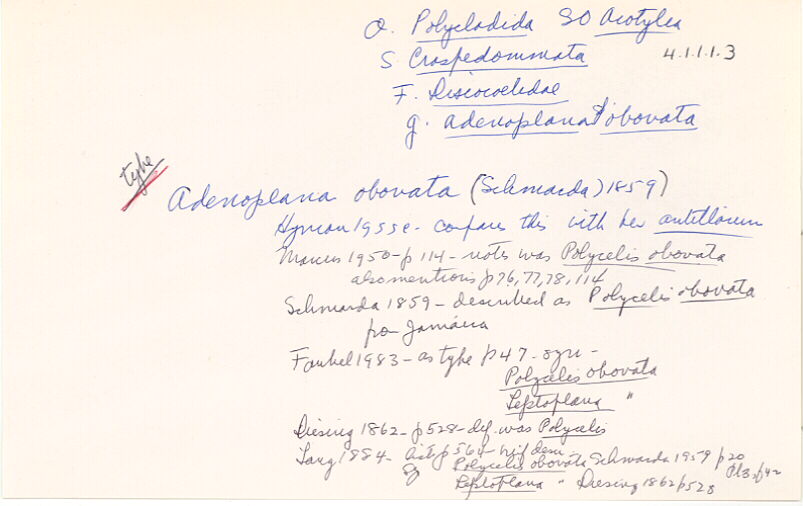 O. Polycladida SO Acotylea
S Craspedommata 4.1.1.1.3
F. Discocoelidae
g. adenoplana obovata
type
Adenoplana obovata (Schmarda) 1859)
Hyman 1955e - compares this with her antillarum
Marcus 1950 - p 114 - notes was Polycelis obovata
also mentions p 76, 77, 78, 114
Schmarda 1859 - described as Polycelis obovata
from Jamaica
Faubel 1983 - as type p 47 - syn -
Polycelis obovata
Leptoplana "
Diesing 1862 - p 528 - def. was Polycelis
Lang 1884 - p 564
Polycelis obovata Schmarda 1959 p 20
Leptoplana " Diesing 1862 p 528